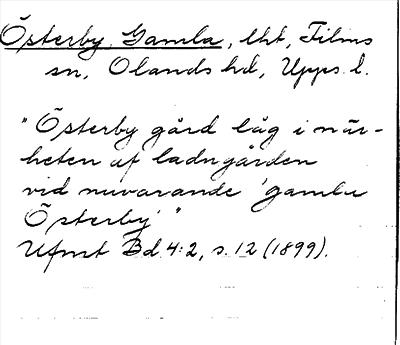 Österby, Gamla, lht, Films
sn, Olands hd, Upps. l.
"Österby gård låg i när-
heten af ladugården
vid nuvarande 'gamla
Österby'."
Ufmt Bd 4:2, s. 12 (1899).